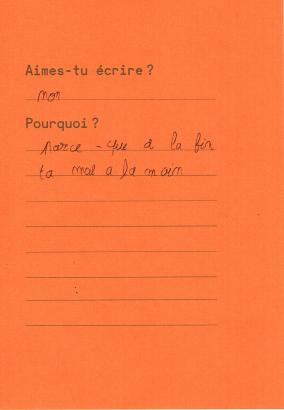 Aimes-tu écrire ?
non
Pourquoi ?
parce - que a la fin
ta mal a la main